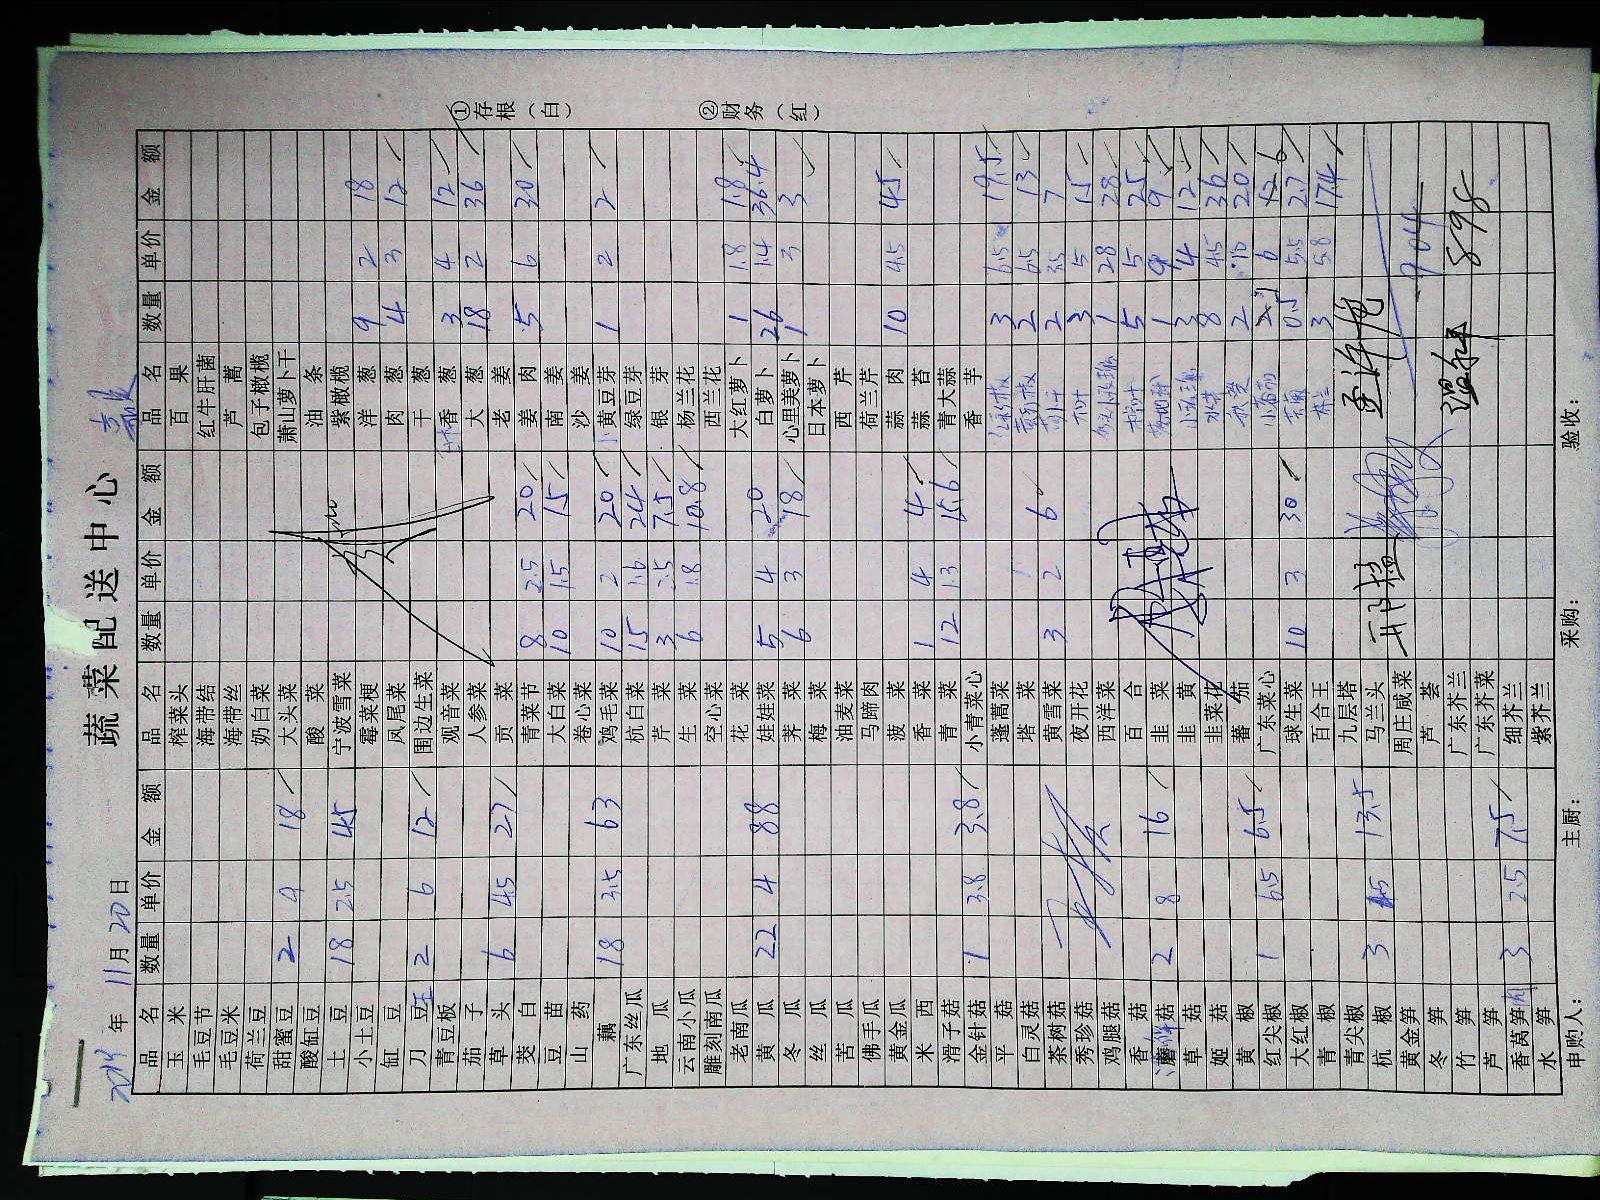 蔬菜配送中心
2014 年 11 月 20 日
①存根（白） ②财务（红）
品名 数量 单价 金额
玉米
毛豆节
毛豆米
荷兰豆
甜蜜豆 2 9 18
酸缸豆
土豆 18 2.5 45
小土豆
缸豆
刀豆 2 6 12
青豆板
茄子
草头 6 4.5 27
茭白
豆苗
山药
藕 18 3.5 63
广东丝瓜
地瓜
云南小瓜
雕刻南瓜
老南瓜
黄瓜 22 4 88
冬瓜
丝瓜
苦瓜
佛手瓜
黄金瓜
米西
滑子菇
金针菇 1 3.8 3.8
平菇
白灵菇
茶树菇
秀珍菇
鸡腿菇
香菇
蘑菇 2 8 16
草菇
姬菇
黄椒
红尖椒 1 6.5 6.5
大红椒
青椒
青尖椒
杭椒 3 4.5 13.5
黄金笋
冬笋
竹笋
芦笋
香莴笋 3 2.5 7.5
水笋
品名 数量 单价 金额
榨菜头
海带结
海带丝
奶白菜
大头菜
酸菜
宁波雪菜
霉菜梗
凤尾菜
围边生菜
观音菜
人参菜
贡菜
青菜节 8 2.5 20
大白菜 10 1.5 15
卷心菜
鸡毛菜 10 2 20
杭白菜 15 1.6 24
芹菜 3 2.5 7.5
生菜 6 1.8 10.8
空心菜
花菜
娃娃菜 5 4 20
荠菜 6 3 18
梅菜
油麦菜
马蹄肉
菠菜
香菜 1 4 4
青菜 12 1.3 15.6
小青菜心
蓬蒿菜
塔菜
黄雪菜 3 2 6
夜开花
西洋菜
百合
韭菜
韭黄
韭菜花
蕃茄
广东菜心
球生菜 10 3 30
百合王
九层塔
马兰头
周庄咸菜
芦荟
广东芥兰
广东芥菜
细芥兰
紫芥兰
品名 数量 单价 金额
百果
红牛肝菌
芦蒿
包子橄榄
萧山萝卜干
油条
紫橄榄
洋葱 9 2 18
肉葱 4 3 12
干葱
香葱 3 4 12
大葱 18 2 36
老姜
姜肉 5 6 30
南姜
沙姜
黄豆芽 1 2 2
绿豆芽
银芽
杨兰花
西兰花
大红萝卜 1 1.8 1.8
白萝卜 26 1.4 36.4
心里美萝卜 1 3 3
日本萝卜
西芹
荷兰芹
蒜肉 10 4.5 45
蒜苔
青大蒜
香芋
3 6.5 19.5
2 6.5 13
2 3.5 7
3 5 15
1 28 28
5 5 25
1 9 9
3 4 12
8 4.5 36
2 10 20
6 6
0.5 5.5 2.7
3 5.8 17.4
904
898
申购人： 主厨： 采购： 验收：